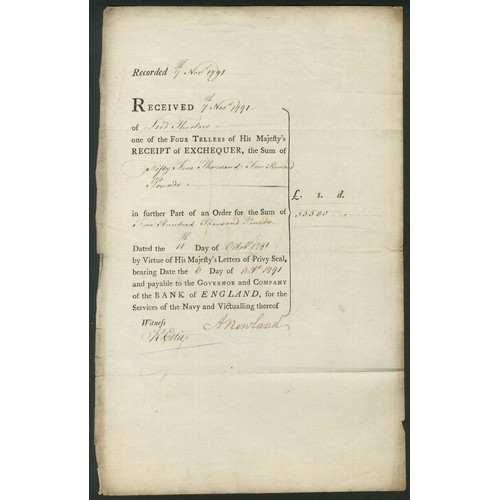 Recorded 7th Novr 1791
RECEIVED 7th Novr 1791
of Lord Thurlow
one of the FOUR TELLERS of His Majesty's
RECEIPT of EXCHEQUER, the Sum of
Fifty Five Thousand Five Hundred
Pounds
£. s. d.
55500
in further Part of an Order for the Sum of
Five Hundred Thousand Pounds
Dated the 11th Day of Octobr 1791
by Virtue of His Majesty's Letters of Privy Seal,
bearing Date the 6 Day of Octr 1791
and payable to the GOVERNOR and COMPANY
of the BANK of ENGLAND, for the
Services of the Navy and Victualling thereof
Witness
A Newland